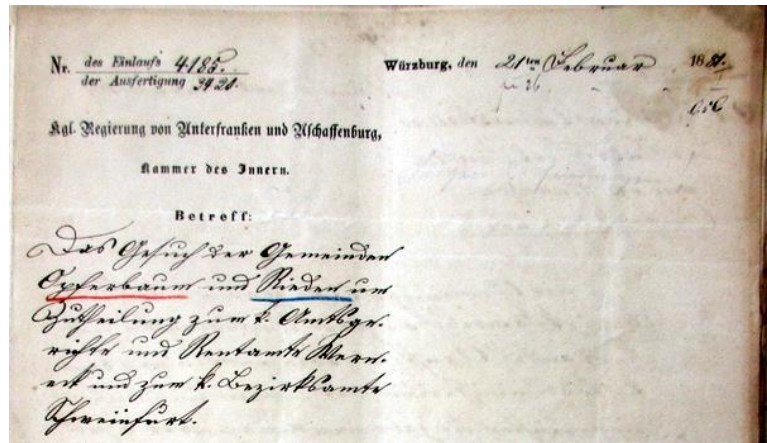 Nr. des Einlaufs 4185.
der Ausfertigung 3920.
Würzburg, den 21ten Februar 1881.
Kgl. Regierung von Unterfranken und Aschaffenburg,
Kammer des Innern.
Betreff:
Das Gesuch der Gemeinden
Opferbaum und Rieden um
Zutheilung zum k. Amtsge-
richte und Rentamte Wern-
eck und zum k. Bezirksamte
Schweinfurt.